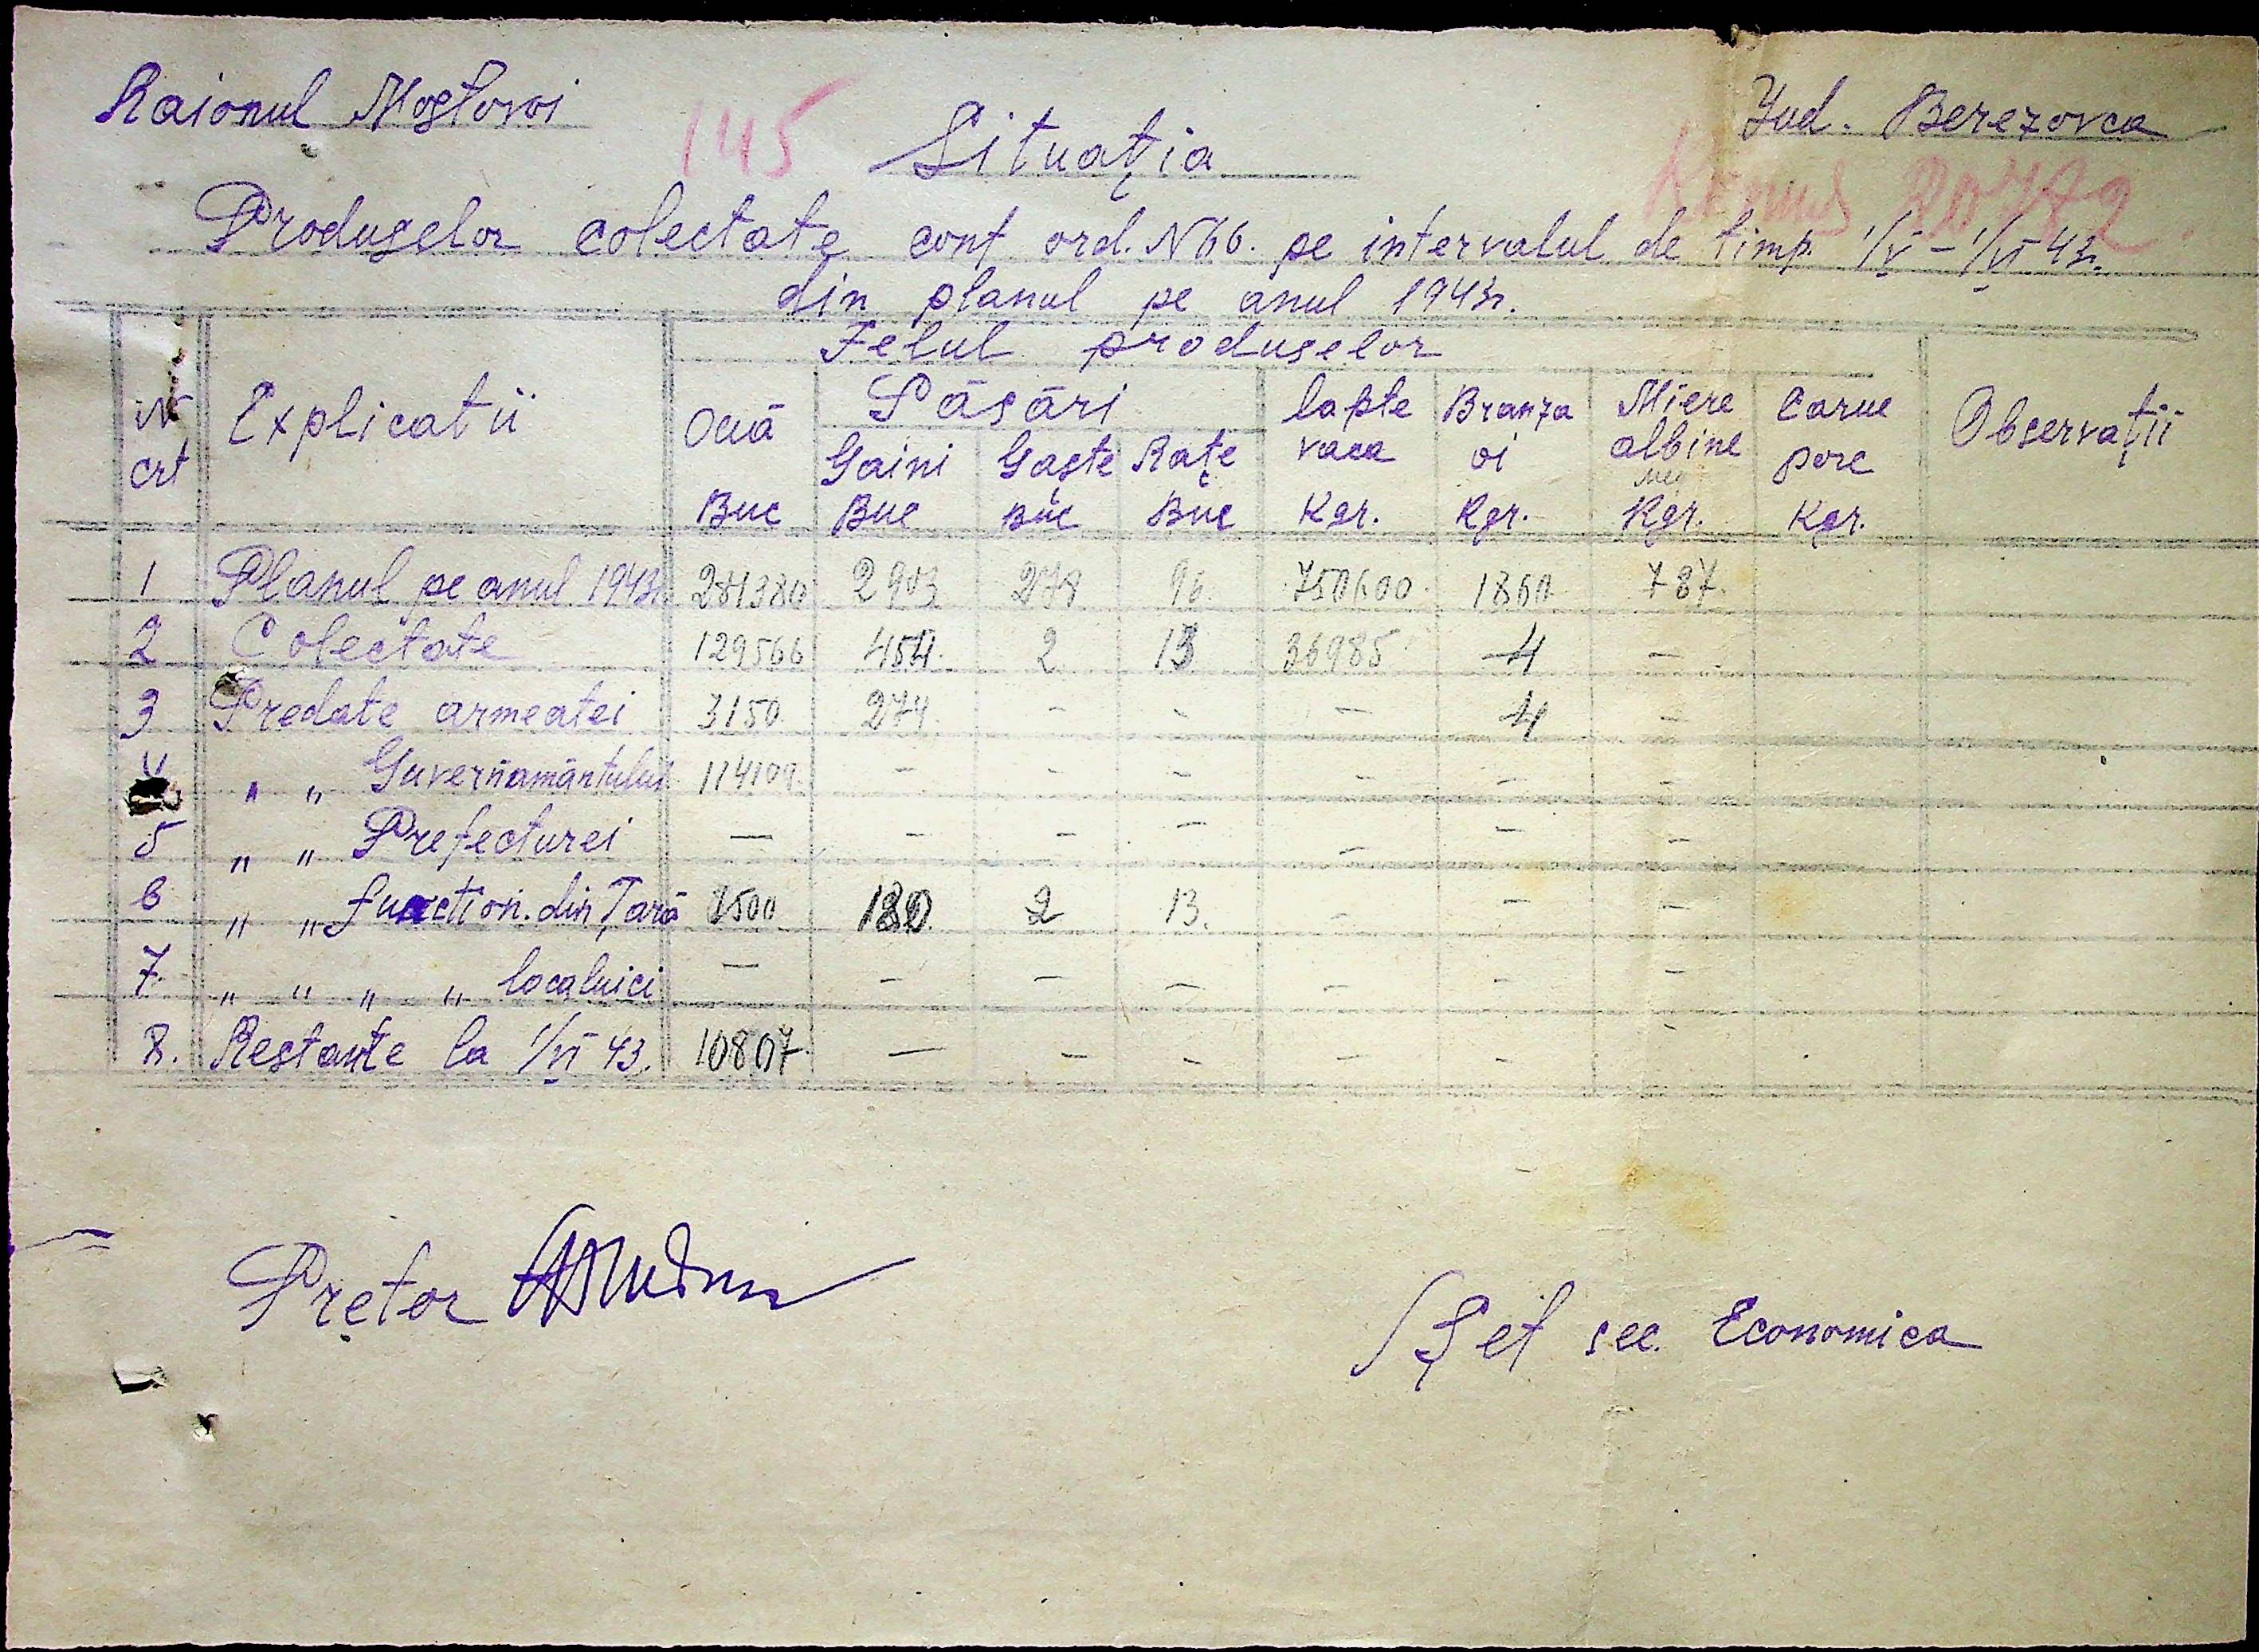 Raionul Mostovoi
Jud. Berezovca
145
Situaţia
Produselor colectate conf ord. N 66. pe intervalul de timp. 1/V – 1/VI 43.
din planul pe anul 1943.
Felul produselor
N crt | Explicatii | Ouă Buc | Păsări | Gaini Buc | Gaşte Buc | Raţe Buc | lapte vaca Kgr. | Branza oi Kgr. | Miere albine Kgr. | Carne porc Kgr. | Observaţii
1 Planul pe anul 1943 2903 278 96. 750600. 1860 787.
2 Colectate 129566 454. 2 13 36985 4 –
3 Predate armeatei 3150. 274. – – – 4 –
4 „ „ Guvernamântului 114109. – – – – – –
5 „ „ Prefecturei – – – – – – –
6 „ „ function. din Ţară 1500 180. 2 13. – – –
7. „ „ „ „ localnici – – – – – – –
8. Restante la 1/VI 43. 10807. – – – – – –
Pretor
Şef sec. Economica